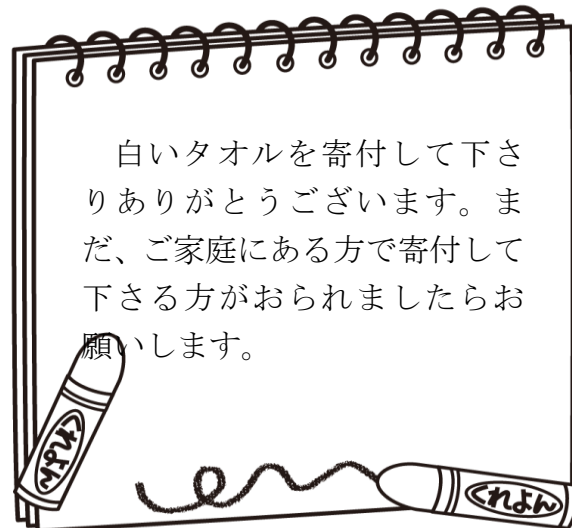 白いタオルを寄付して下さ
りありがとうございます。ま
だ、ご家庭にある方で寄付して
下さる方がおられましたらお
願いします。
くれよん
くれよん